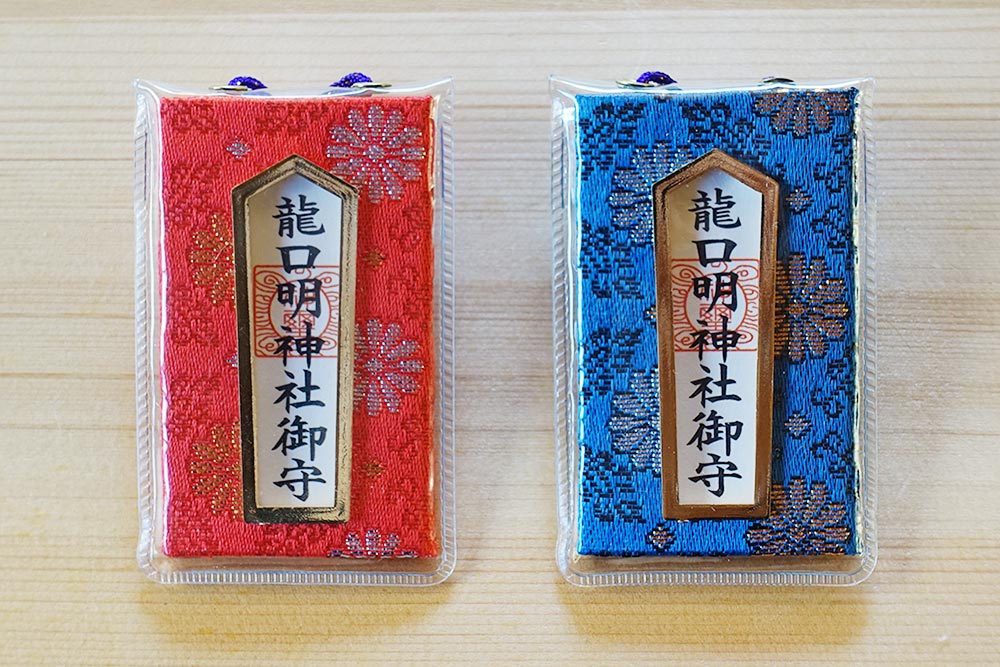 龍口明神社御守
龍口明神社御守